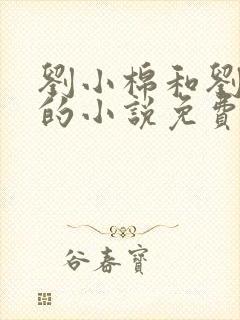 劉小棉和劉
的小說免費
谷春寶